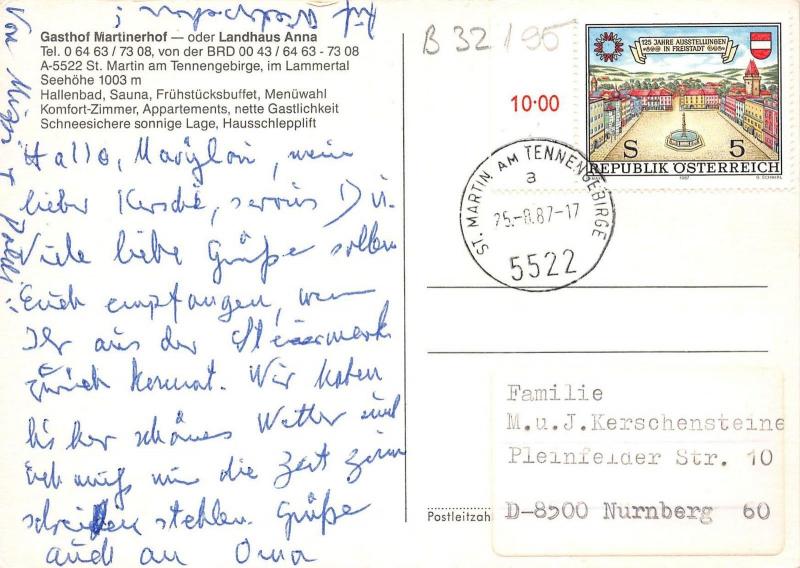 Gasthof Martinerhof — oder Landhaus Anna
Tel. 0 64 63 / 73 08, von der BRD 00 43 / 64 63 - 73 08
A-5522 St. Martin am Tennengebirge, im Lammertal
Seehöhe 1003 m
Hallenbad, Sauna, Frühstücksbuffet, Menüwahl
Komfort-Zimmer, Appartements, nette Gastlichkeit
Schneesichere sonnige Lage, Hausschlepplift
Hallo, Marylon, mein
lieber Kersché, servus
Viele liebe Grüße sollen
Euch empfangen, wenn
Ihr aus der Steiermark
zurück kommt. Wir haben
bisher schönes Wetter und
ich muß mir die Zeit zum
schreiben stehlen. Grüße
auch an Oma
Auf Wiedersehen!
Von
B 32/95
10·00
125 JAHRE AUSSTELLUNGEN
IN FREISTADT
S 5
REPUBLIK ÖSTERREICH
1987
ST. MARTIN AM TENNENGEBIRGE
a
25.-8.87-17
5522
Familie
M.u.J.Kerschensteine
Pleinfelder Str. 10
D-8500 Nurnberg 60
Postleitzahl